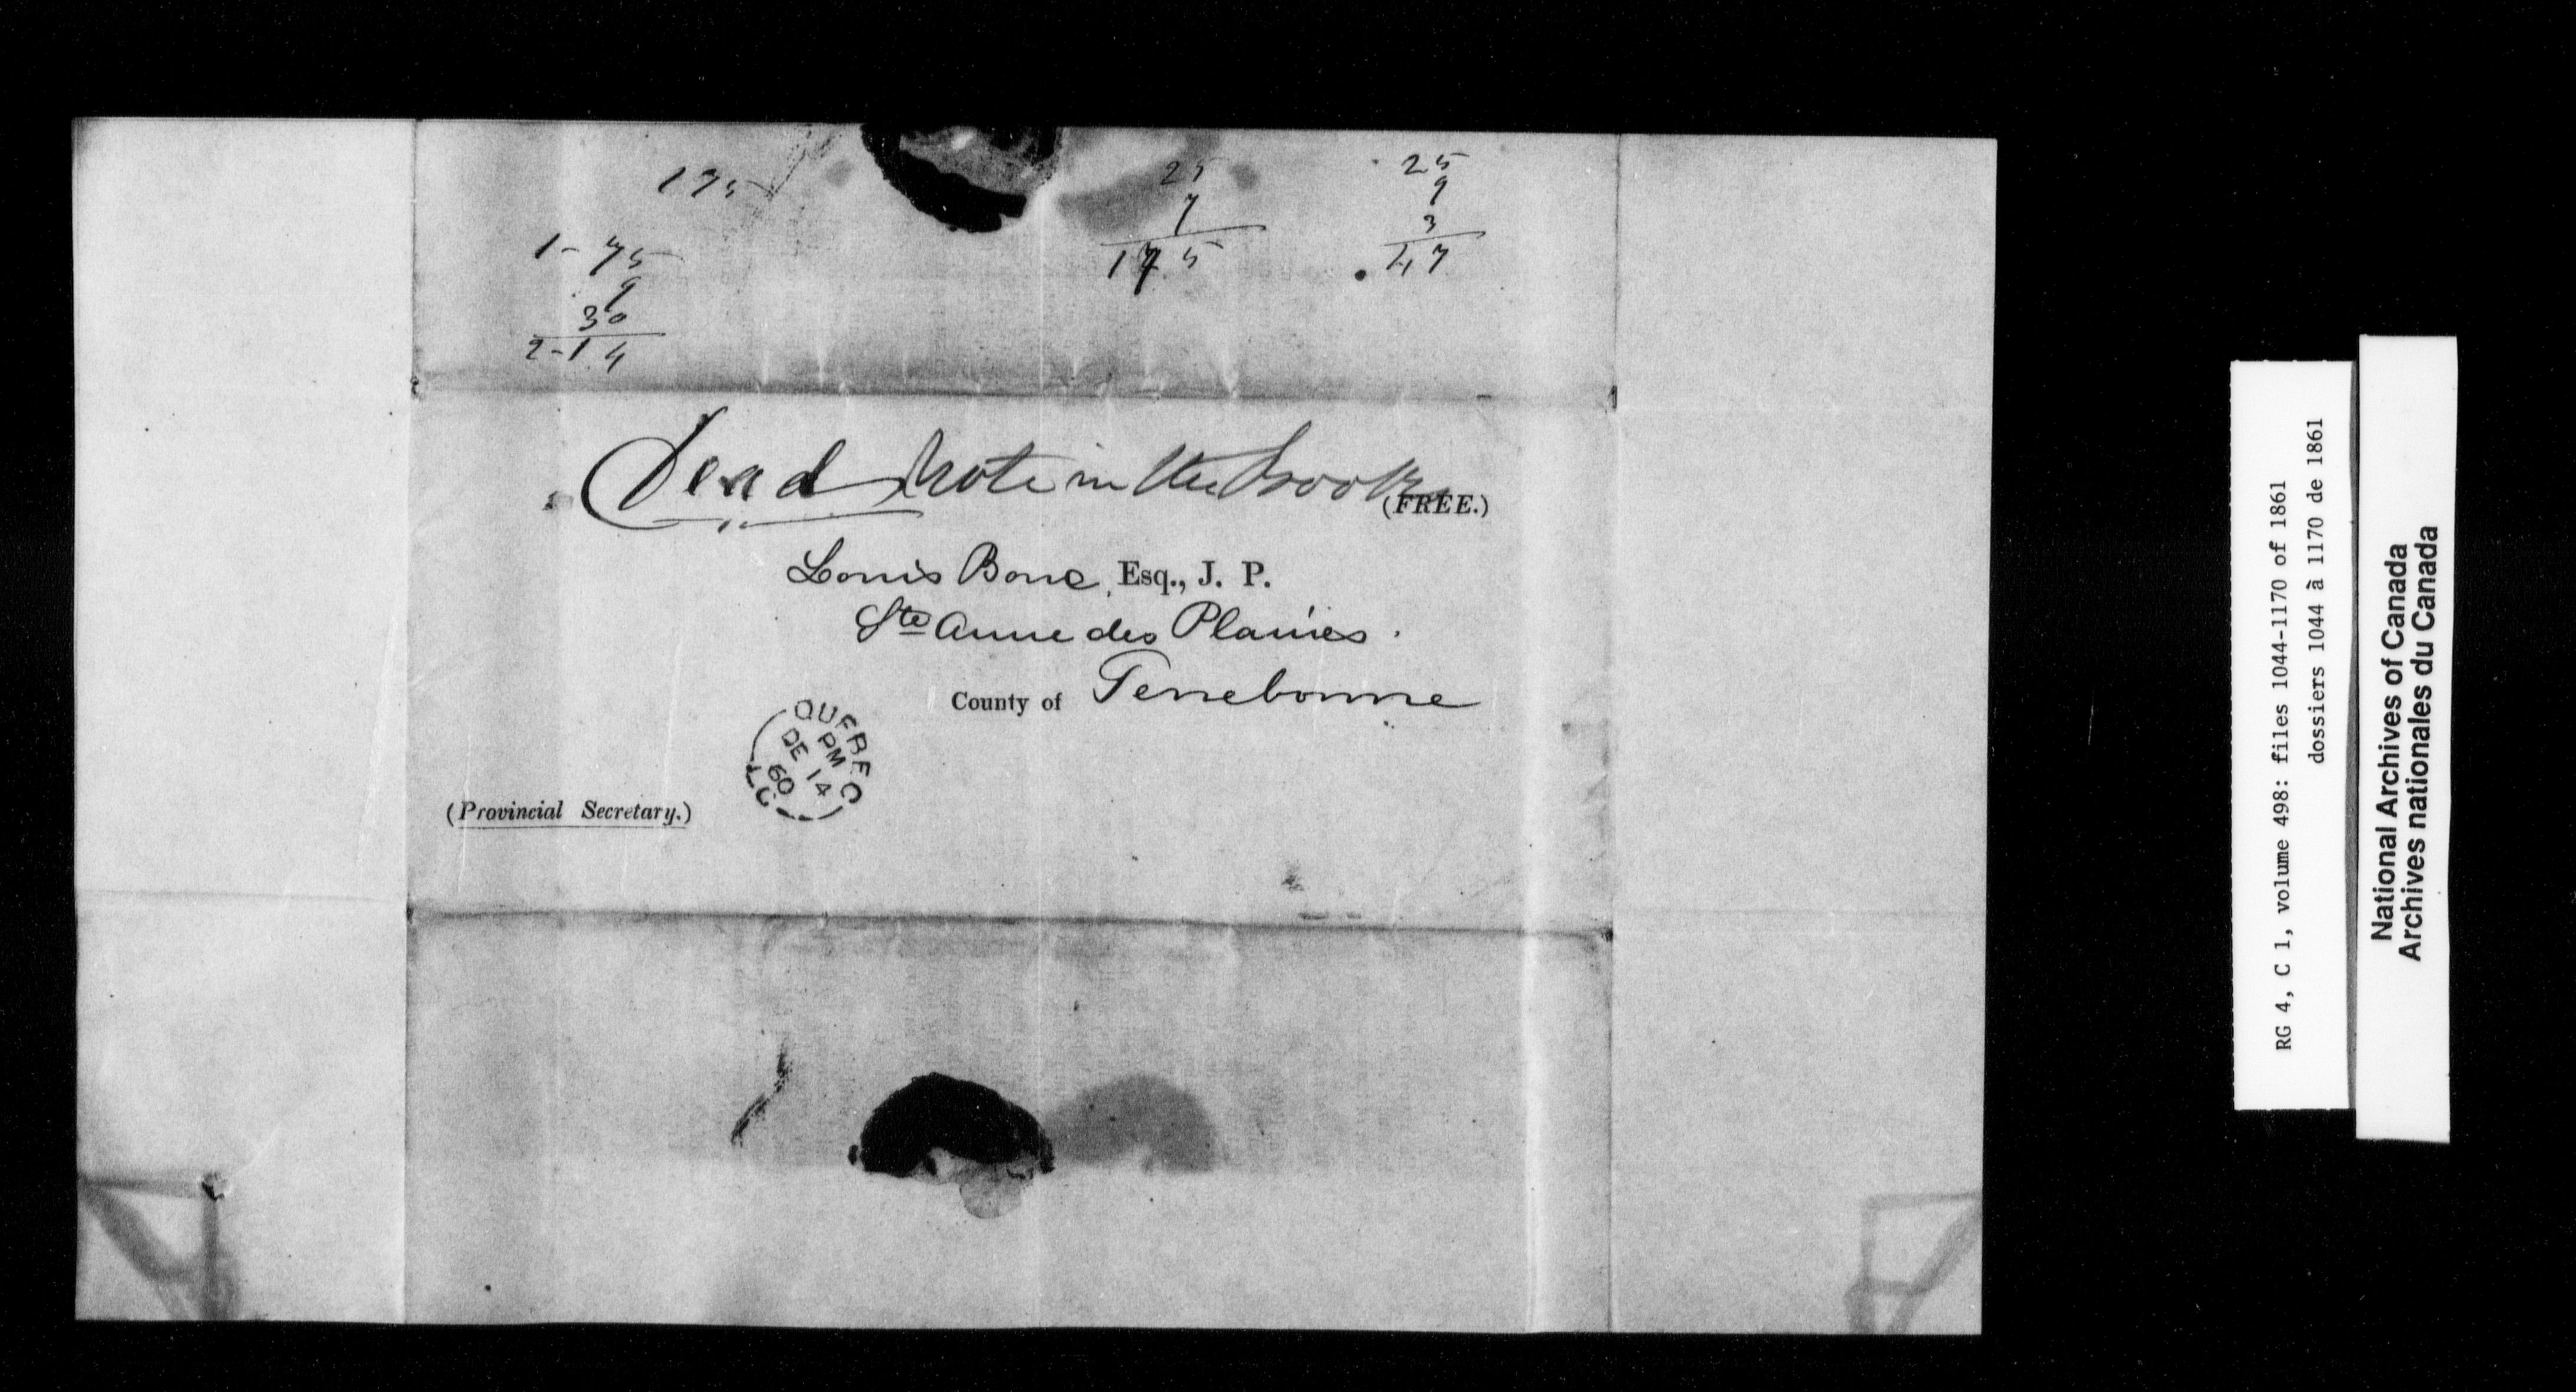 175
25
7
175
25
9
3
47
1-75
9
30
2-14
Dead Note in the book
(FREE.)
Louis Bouc, Esq., J. P.
Ste Anne des Plaines.
County of Terrebonne
QUEBEC
PM
DE 14
60
L.C.
(Provincial Secretary.)
RG 4, C 1, volume 498: files 1044-1170 of 1861
dossiers 1044 à 1170 de 1861
National Archives of Canada
Archives nationales du Canada